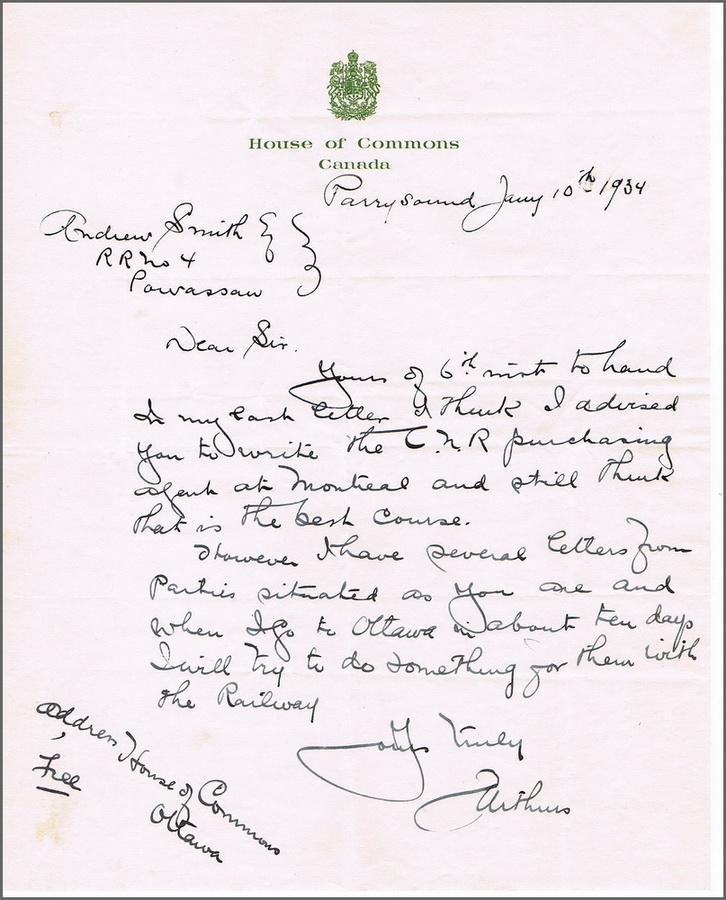 House of Commons
Canada
Parry Sound Jany 10th 1934
Andrew Smith Esq
RR No 4
Powassan
Dear Sir.
Yours of 6th inst to hand
In my last letter I think I advised
you to write the C.N.R purchasing
agent at Montreal and still think
that is the best course.
However I have several letters from
Parties situated as you are and
when I go to Ottawa in about ten days
I will try to do something for them with
the Railway
Yours truly
Arthurs
address House of Commons
Ottawa
Free